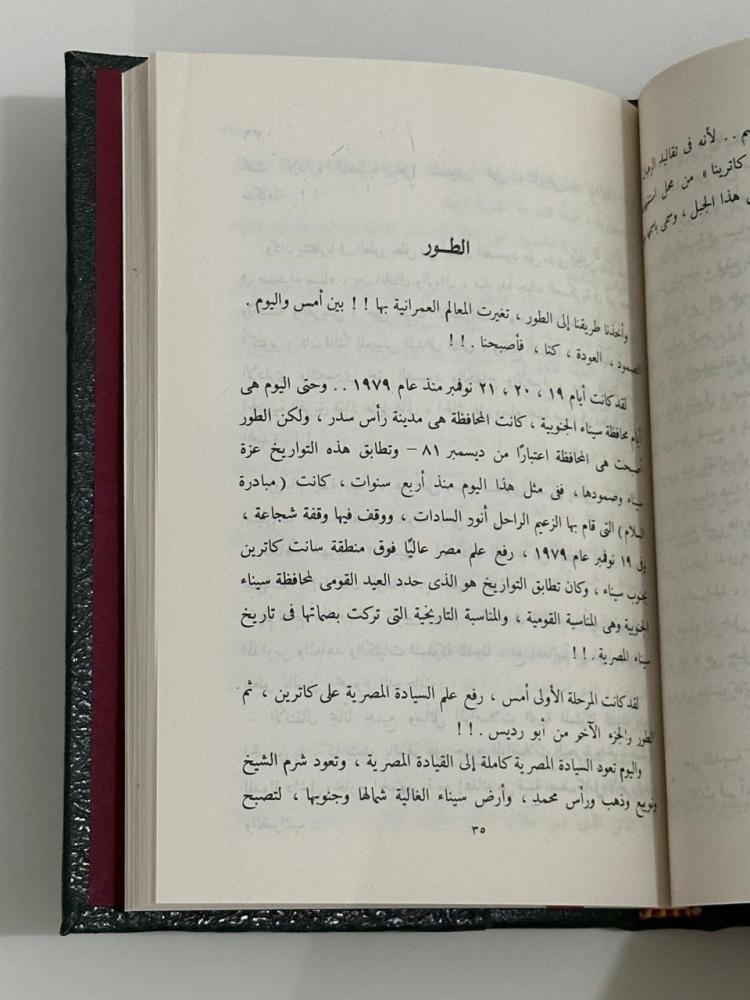 م . . لأنه فى تقاليد
كاترينا » من محل
هذا الجبل ، وسمى
الطــور
وأخذنا طريقنا إلى الطور ، تغيرت المعالم العمرانية بها ! ! بين أمس واليوم .
الصمود ، العودة ، كنا ، فأصبحنا . ! !
لقد كانت أيام ١٩ ، ٢٠ ، ٢١ نوفمبر منذ عام ١٩٧٩ . . وحتى اليوم هى
أيام محافظة سيناء الجنوبية ، كانت المحافظة هى مدينة رأس سدر ، ولكن الطور
أصبحت هى المحافظة اعتبارًا من ديسمبر ٨١ – وتطابق هذه التواريخ عزة
سيناء وصمودها ، ففى مثل هذا اليوم منذ أربع سنوات ، كانت ( مبادرة
السلام ) التى قام بها الزعيم الراحل أنور السادات ، ووقف فيها وقفة شجاعة ،
وفى ١٩ نوفمبر عام ١٩٧٩ ، رفع علم مصر عاليًا فوق منطقة سانت كاترين
بجنوب سيناء ، وكان تطابق التواريخ هو الذى حدد العيد القومى لمحافظة سيناء
الجنوبية وهى المناسبة القومية ، والمناسبة التاريخية التى تركت بصماتها فى تاريخ
سيناء المصرية . ! !
لقد كانت المرحلة الأولى أمس ، رفع علم السيادة المصرية على كاترين ، ثم
الطور والجزء الآخر من أبو رديس . ! !
واليوم تعود السيادة المصرية كاملة إلى القيادة المصرية ، وتعود شرم الشيخ
ونويبع وذهب ورأس محمد ، وأرض سيناء الغالية شمالها وجنوبها ، لتصبح
٣٥